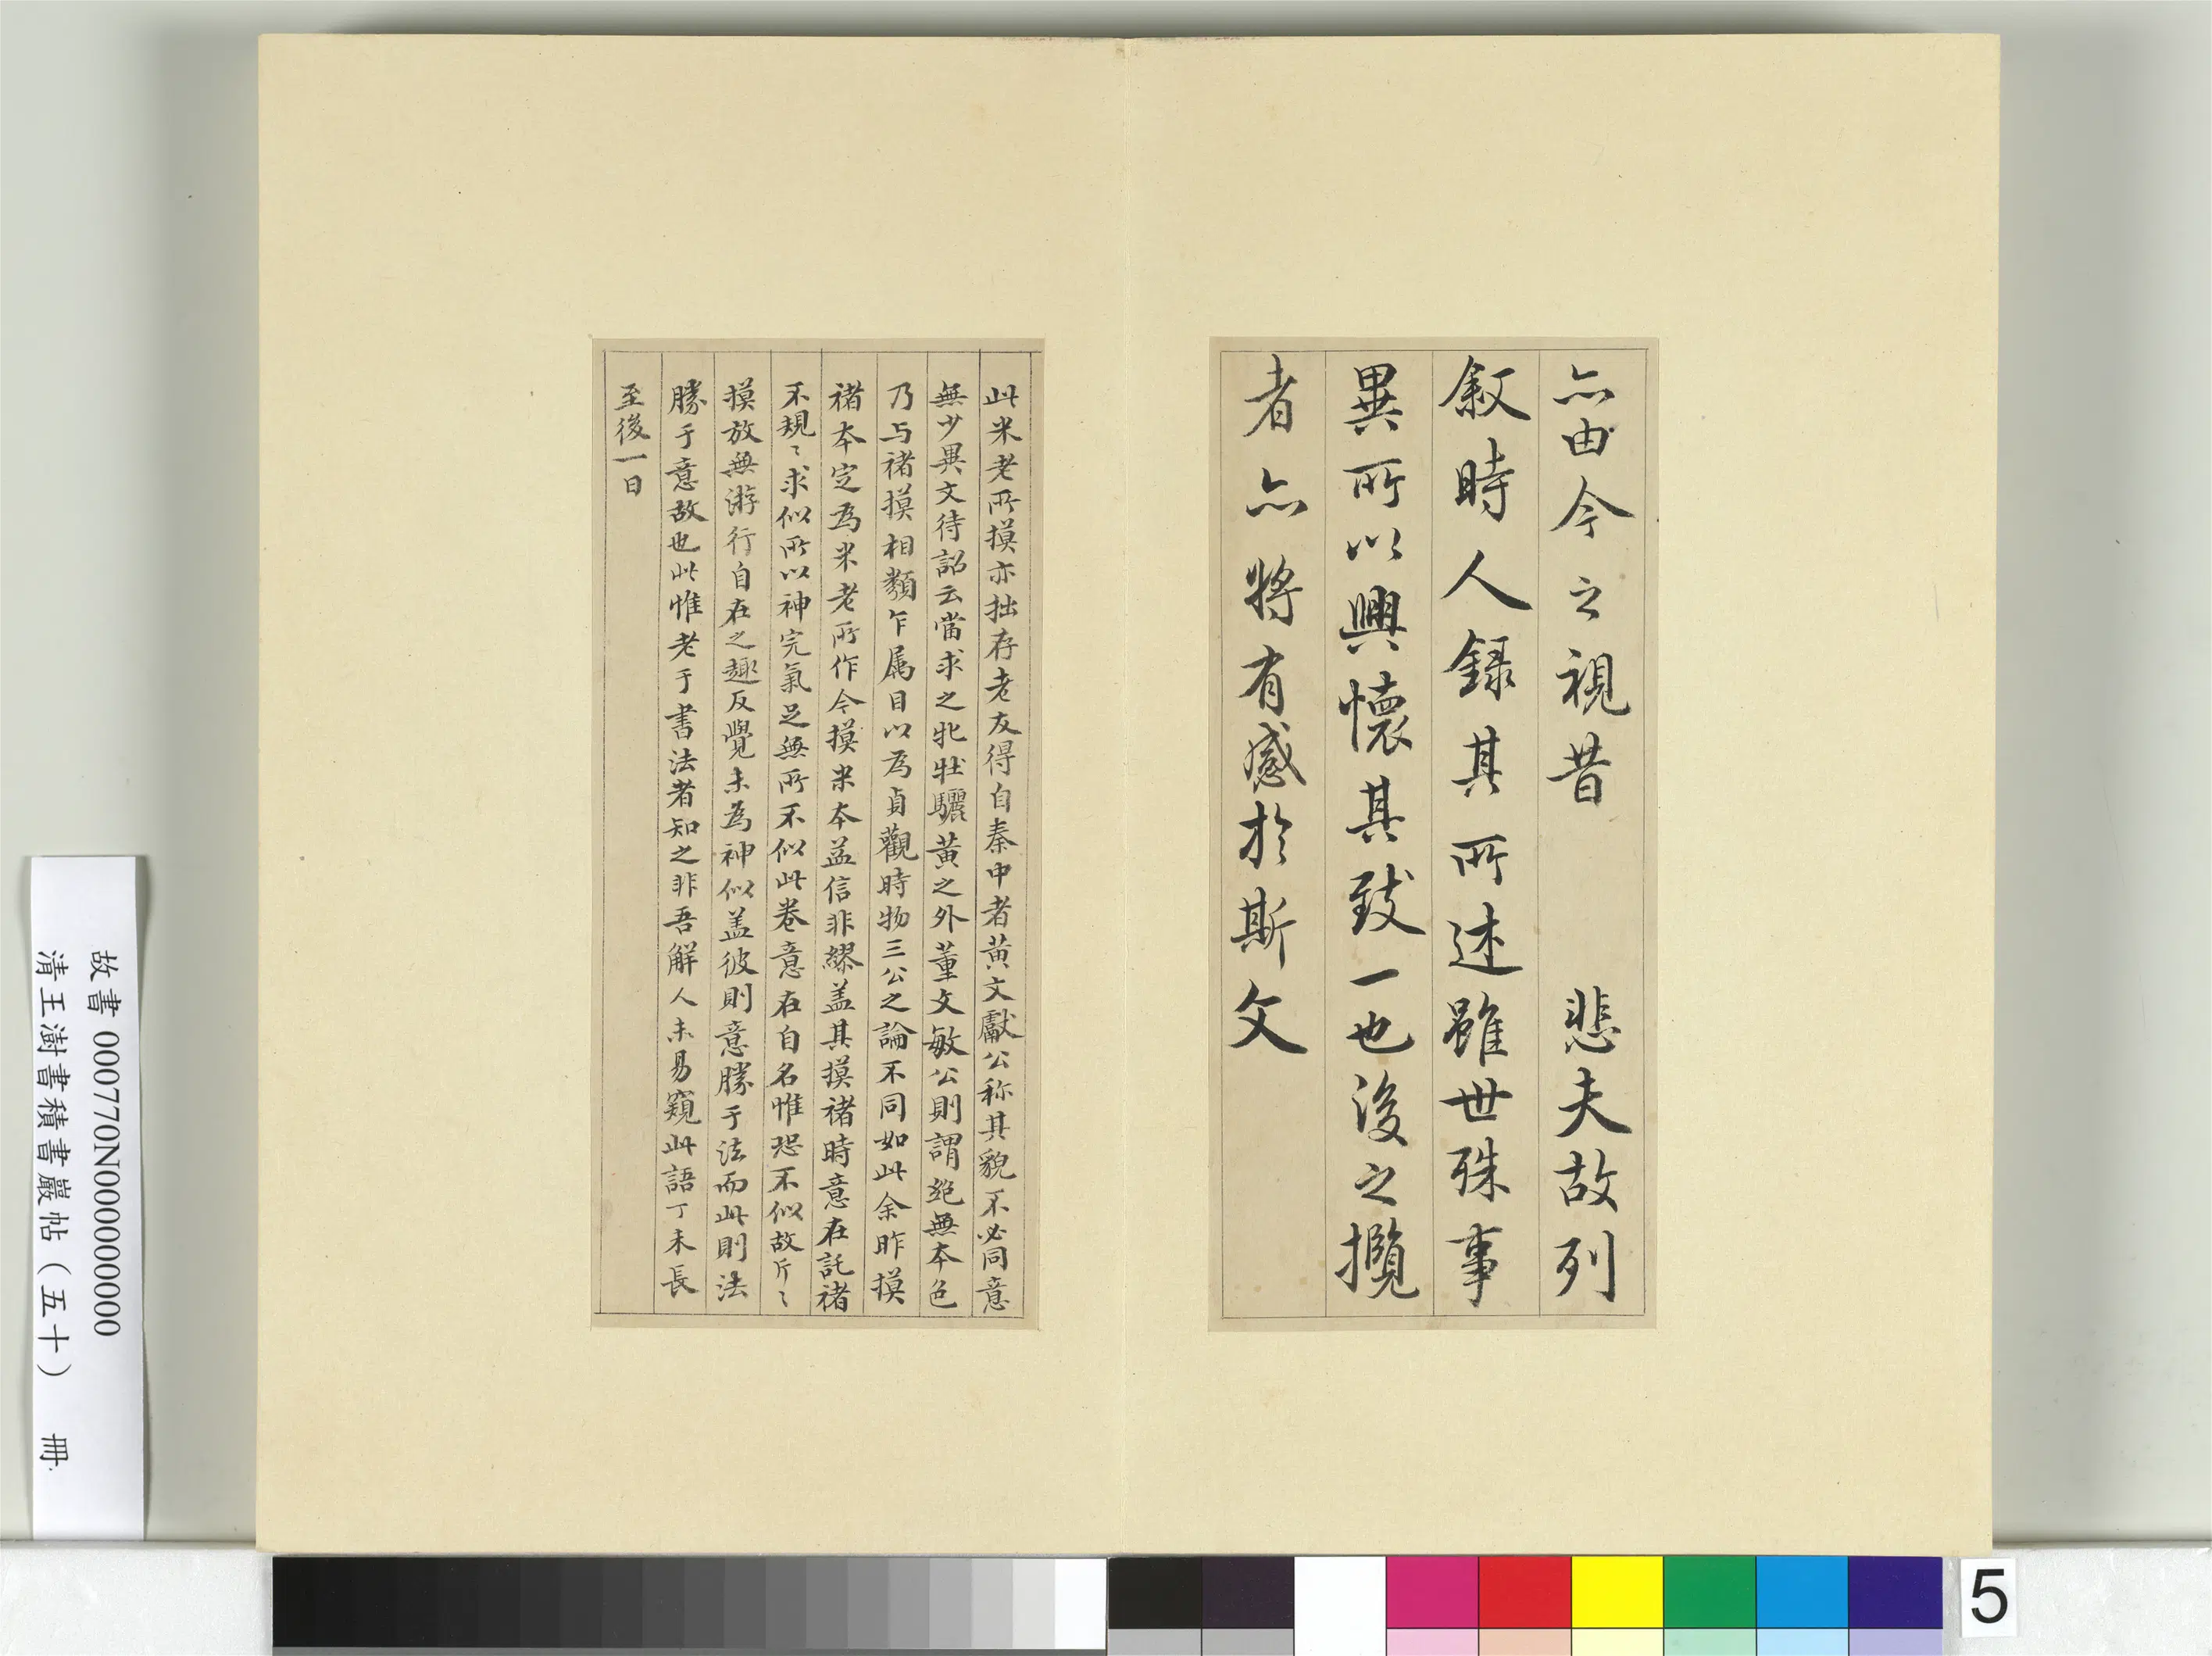 亦由今之視昔　悲夫故列
叙時人録其所述雖世殊事
異所以興懷其致一也後之攬
者亦將有感於斯文
此米老所摸亦拙存老友得自秦中者黄文獻公称其貌不必同意
無少異文待詔云當求之牝牡驪黄之外董文敏公則謂絶無本色
乃与禇摸相類乍属目以為貞觀時物三公之論不同如此余昨摸
禇本定為米老所作今摸米本益信非繆盖其摸禇時意在託禇
不規〻求似所以神完氣足無所不似此卷意在自名惟恐不似故斤〻
摸放無游行自在之趣反覺未為神似盖彼則意勝于法而此則法
勝于意故也此惟老于書法者知之非吾解人未易窺此語丁未長
至後一日
故書 000770N000000000
清王澍書積書巖帖（五十）　冊
5